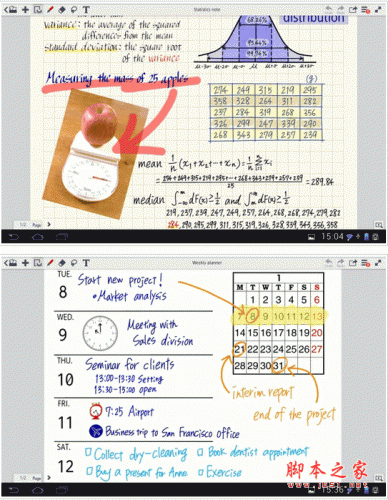 Statistics note
variance: the average of the squared
differences from the mean
standard deviation: the square root
of the variance
distribution
68.26%
95.44%
99.74%
μ-3σ μ-2σ μ-σ μ μ+σ μ+2σ μ+3σ
Measuring the mass of 25 apples
(g)
274 249 315 219 295
358 328 264 311 282
237 284 319 268 356
326 299 247 339 290
268 343 279 257 239
mean 1/n (x₁+x₂+…+xₙ) = 1/n Σ xᵢ
= 274+249+315+219+295+…+268+343+279+257+239 / 25 = 289.84
median ∫ dF(x) ≥ 1/2 and ∫ dF(x) ≥ 1/2
219, 237, 239, 247, 249, 257, 264, 268, 268, 274, 279, 282
284, 290, 295, 299, 311, 315, 319, 326, 328, 339, 343, 356, 358
1/2 Page
15:04
Weekly planner
TUE.
8
Start new project!
•Market analysis
WED.
9
Meeting with
Sales division
THU.
10
Seminar for clients
13:00-13:30 Setting
13:30-15:00 open
FRI.
11
7:25 Airport
Business trip to San Francisco office
SAT.
12
Collect dry-cleaning
Book dentist appointment
Buy a present for Anne
Exercise
1
M T W T F S S
1 2 3 4 5 6
7 8 9 10 11 12 13
14 15 16 17 18 19 20
21 22 23 24 25 26 27
28 29 30 31
interim report
end of the project
1/2 Page
15:36
脚本之家